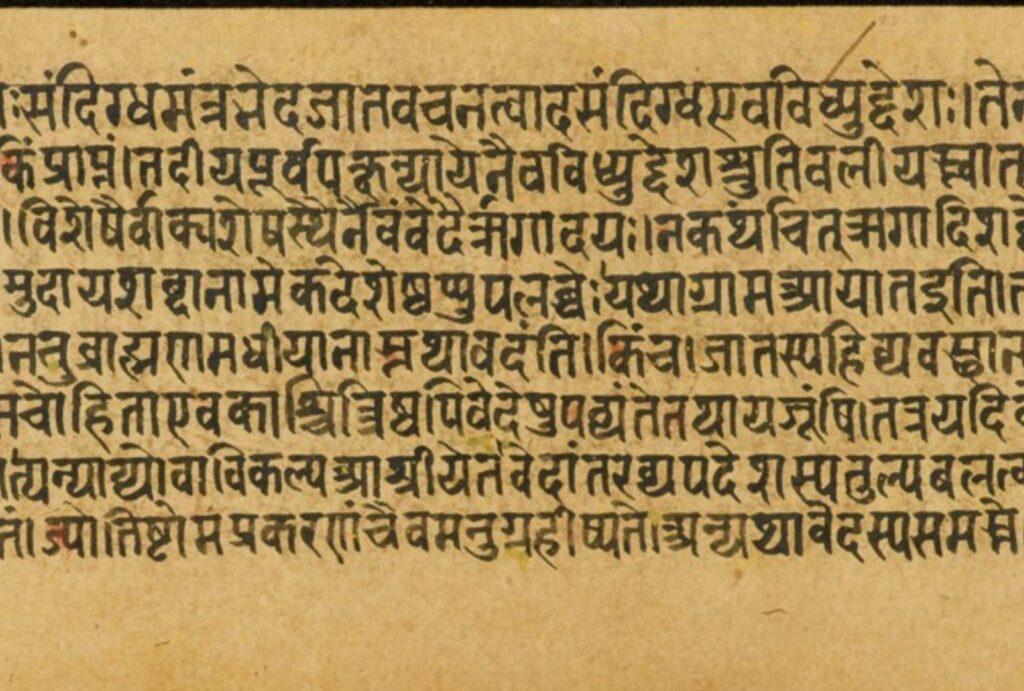 ःसंदिग्धमंत्रभेदजातवचनत्वादसंदिग्धएवविध्युद्देशः।तेन
किंप्राप्तं।तदीयपूर्वपक्षन्यायेनैवविध्युद्देशस्तुतिबलीयस्त्वात
।विशेषैर्वाक्यशेषस्थैर्नैवंवेदैर्ऋगादयः।नकथंचितऋगादिश
मुदायशब्दानामेकदेशेष्वप्युपलब्धेःयथाग्रामआयातइति।
ननुब्राह्मणमधीयानास्तथावदंति।किंच।जातस्यहिव्यवस्थान
ऋचोहिताएवकाश्चित्रिष्वपिवेदेषुपठ्यंतेतथायजूंषि।तत्रयदि
त्यन्याय्योवाविकल्पआश्रीयेतवेदांतरव्यपदेशस्यतुल्यबलत्व
तं।ज्योतिष्टोमप्रकरणंचैवमनुग्रहीष्यते।अन्यथावेदस्यसमस्ते